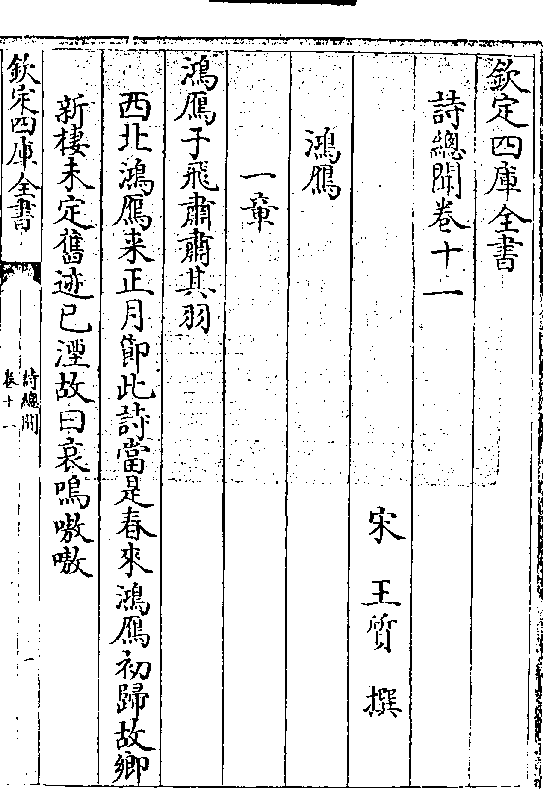 欽定四庫全書
詩總聞卷十一
宋 王質 撰
鴻鴈
一章
鴻鴈于飛肅肅其羽
西北鴻鴈来正月節此詩當是春來鴻鴈初歸故鄉
新棲未定舊迹已湮故曰哀鳴嗷嗷
欽定四庫全書
詩總聞
卷十一
一